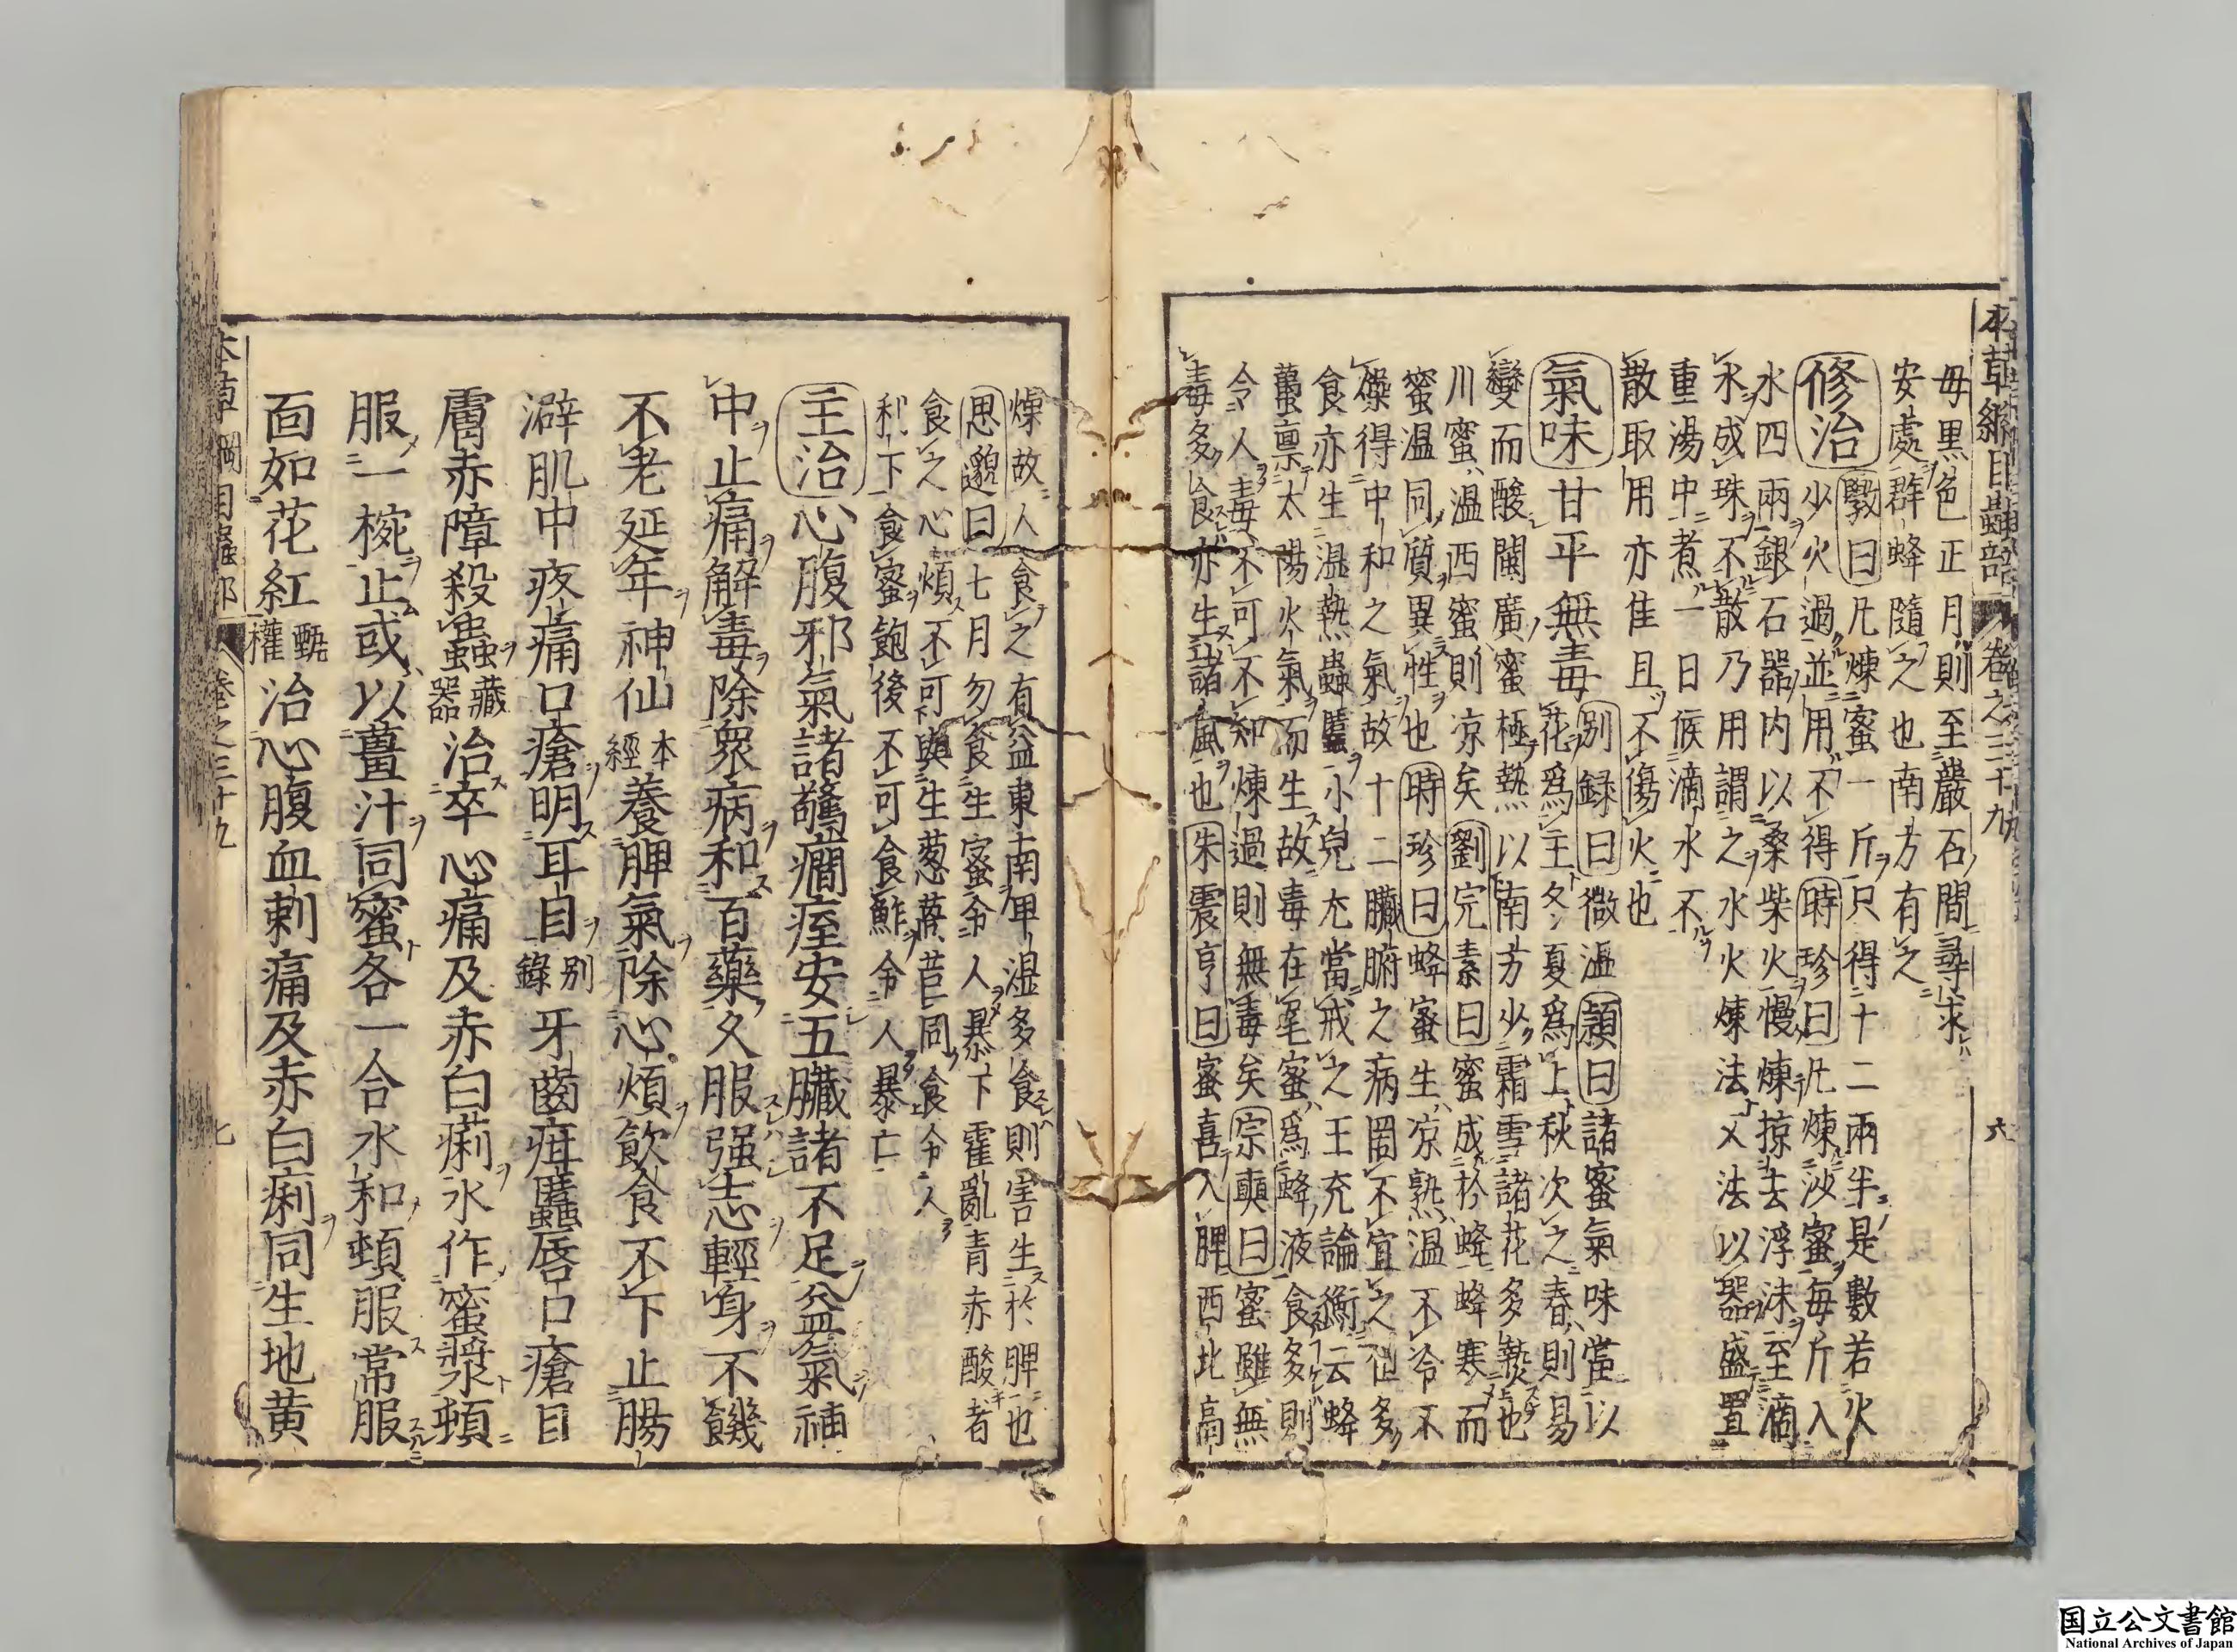 本草綱目蟲部 卷之三十九 六
毋黒色正月則至巖石間尋求
安處群蜂隨之也南方有之
修治 斅曰凡煉蜜一斤只得十二兩半是數若火
少火過並用不得時珍曰凡煉沙蜜毎斤入
水四兩銀石器内以桑柴火慢煉掠去浮沫至滴
水成珠不散乃用謂之水火煉法又法以器盛置
重湯中煮一日候滴水不
散取用亦佳且不傷火也
氣味甘平無毒 别録曰微温頴曰諸蜜氣味當以
花爲主冬夏爲上秋次之春則易
變而酸閩廣蜜極熱以南方少霜雪諸花多熱也
川蜜温西蜜則凉矣劉完素曰蜜成於蜂蜂寒而
蜜温同質異性也時珍曰蜂蜜生凉熟温不冷不
燥得中和之氣故十二臟腑之病罔不宜之但多
食亦生温熱蟲䘌小兒尤當戒之王充論衡云蜂
蠆禀太陽火氣而生故毒在尾蜜爲蜂液食多則
令人毒不可不知煉過則無毒矣宗奭曰蜜雖無
毒多食亦生諸風也朱震亨曰蜜喜入脾西北高
燥故人食之有益東南卑湿多食則害生於脾也
思邈曰七月勿食生蜜令人暴下霍亂青赤酸者
食之心煩不可與生葱萵苣同食令人
利下食蜜飽後不可食鮓令人暴亡
主治心腹邪氣諸驚癎痓安五臟諸不足益氣補
中止痛解毒除衆病和百藥久服强志輕身不饑
不老延年神仙 本經 養脾氣除心煩飲食不下止腸
澼肌中疼痛口瘡明耳目 别錄 牙齒疳䘌唇口瘡目
膚赤障殺蟲 藏器 治卒心痛及赤白痢水作蜜漿頓
服一椀止或以薑汁同蜜各一合水和頓服常服
面如花紅 甄權 治心腹血刺痛及赤白痢同生地黄
本草綱目蟲部 卷之三十九 七
国立公文書館
National Archives of Japan